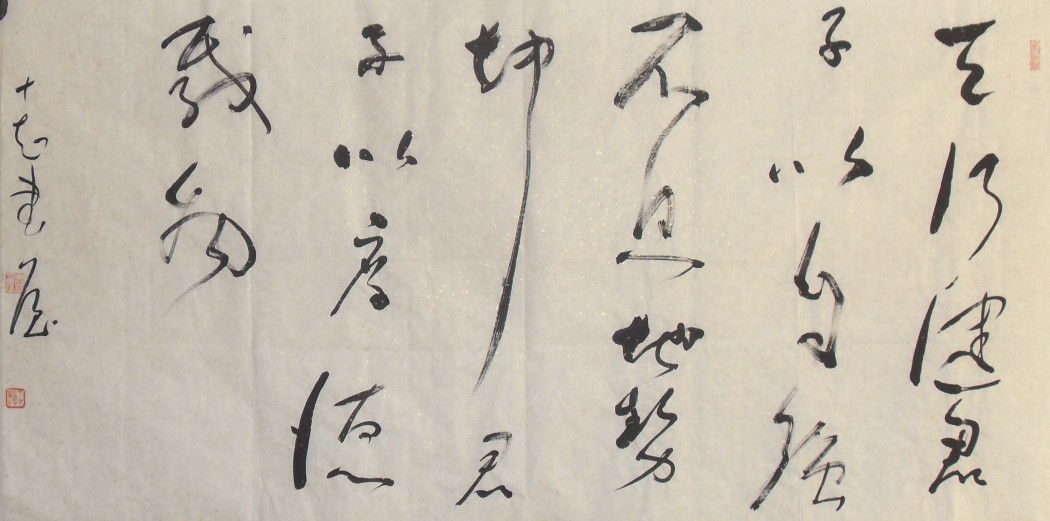 天行健君
子以自強
不息地勢
坤君
子以厚德
載物
十 書